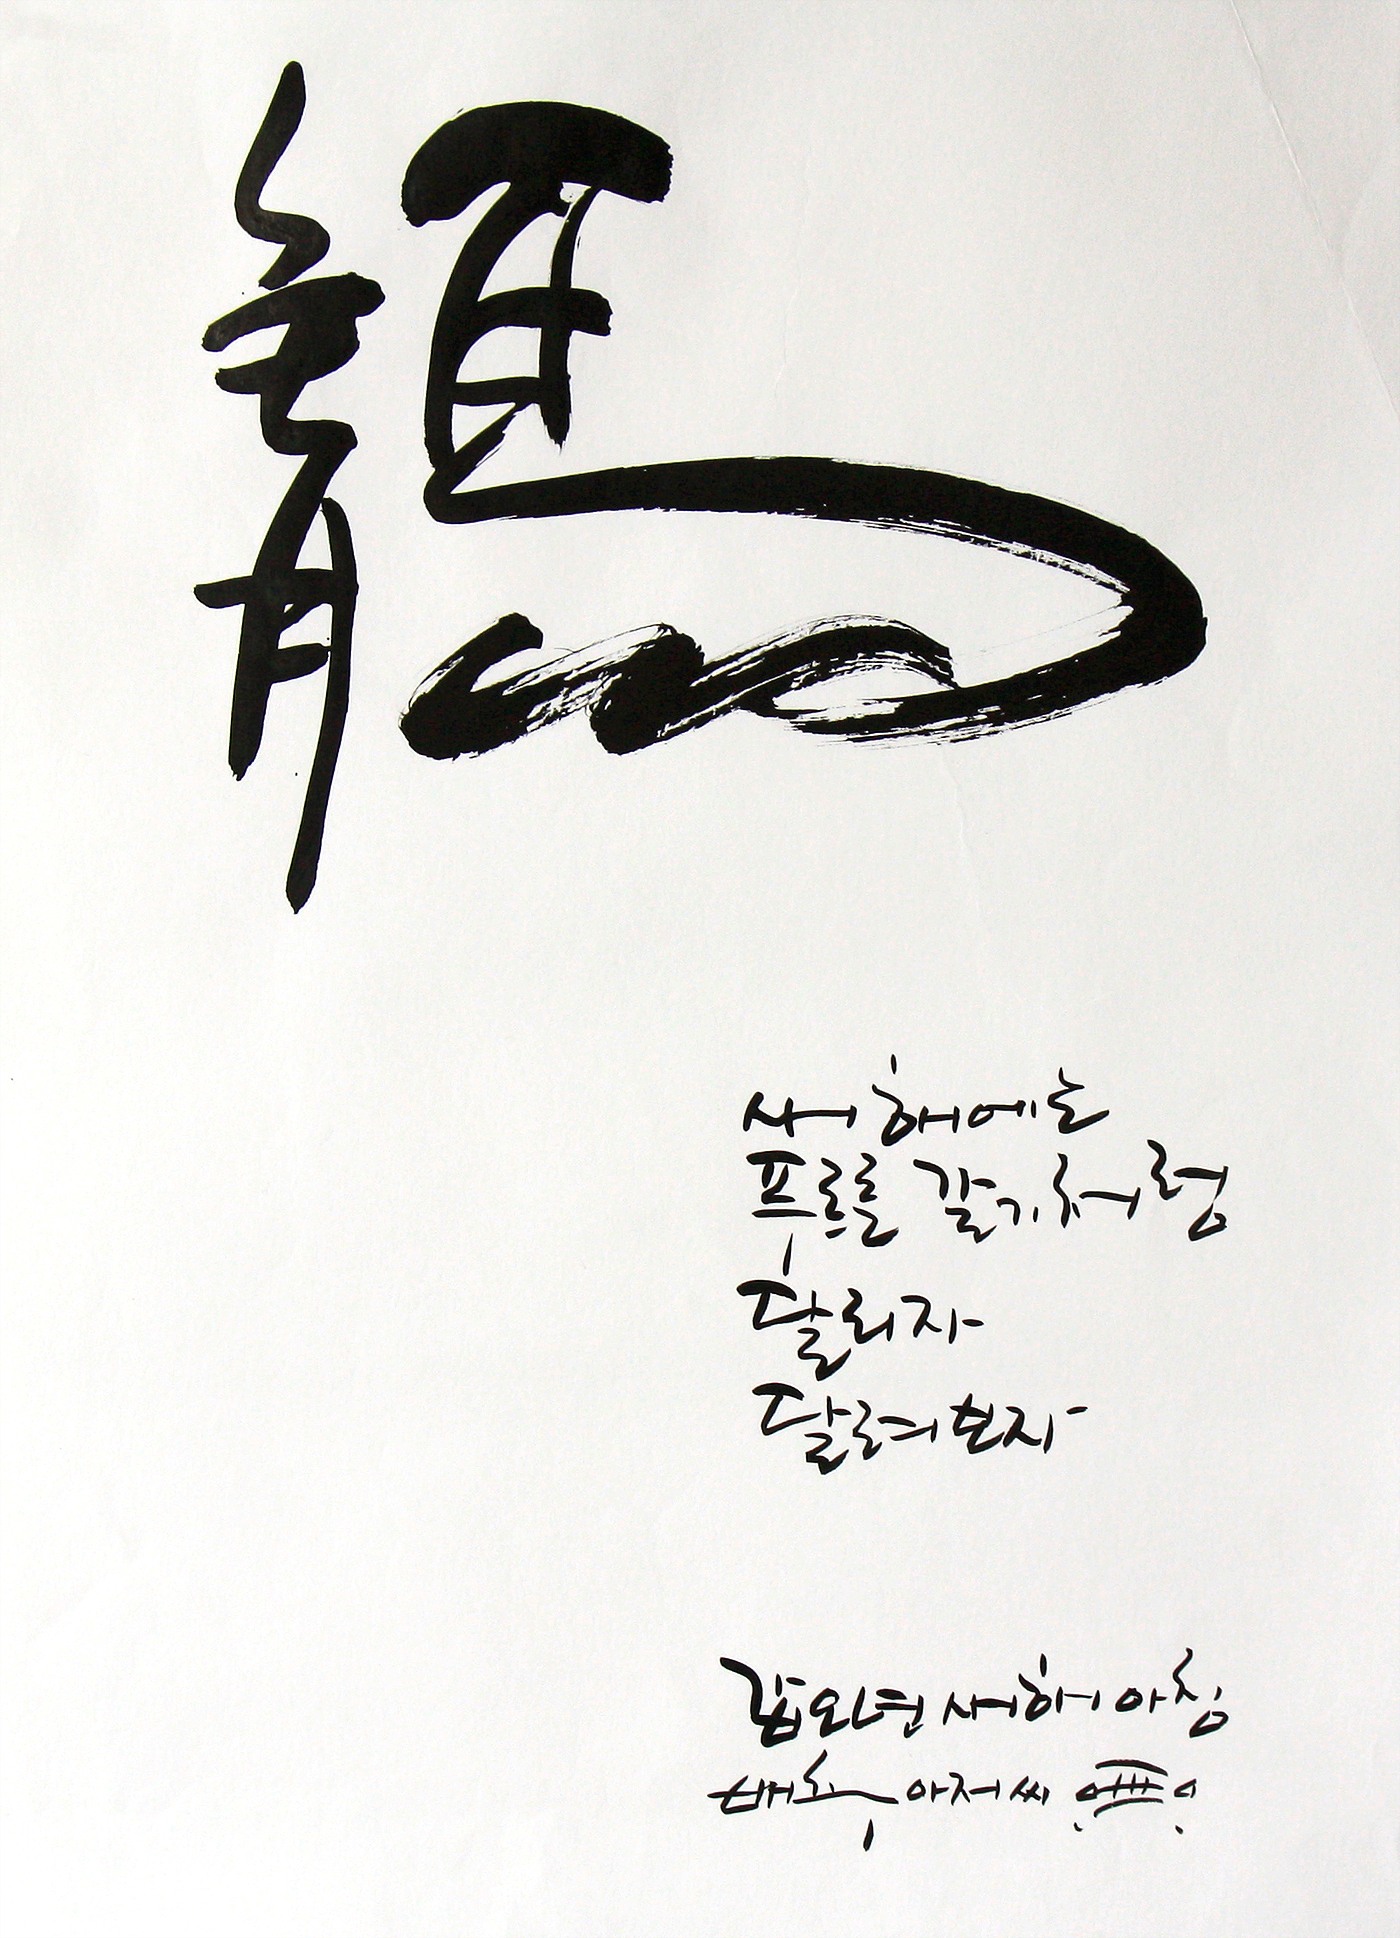 青馬
새해에는
푸르른 갈기처럼
달리자
달려보자
갑오년 새해 아침
배추 아저씨